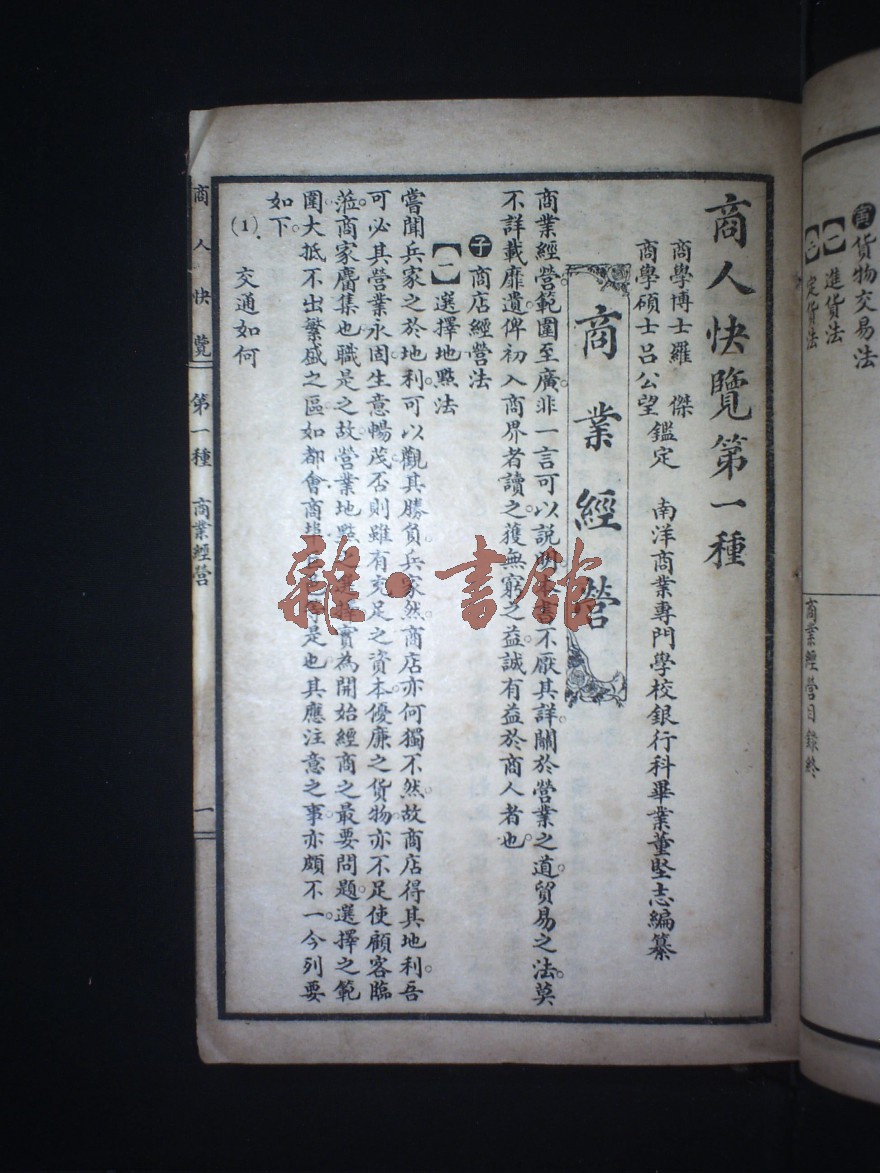 寅 貨物交易法
【一】 進貨法
【二】 定貨法
商業經營目錄終
商人快覽第一種
商學博士羅 傑
商學碩士呂公望 鑑定 南洋商業專門學校銀行科畢業董堅志編纂
商業經營
商業經營範圍至廣。非一言可以說明。本書不厭其詳。關於營業之道。貿易之法。莫
不詳載靡遺。俾初入商界者讀之。獲無窮之益。誠有益於商人者也
子 商店經營法
【一】 選擇地點法
嘗聞兵家之於地利。可以觀其勝負。兵家然。商店亦何獨不然。故商店得其地利。吾
可必其營業永固。生意暢茂。否則雖有充足之資本。優廉之貨物。亦不足使顧客臨
蒞。商家麕集也。職是之故。營業地點之選擇。實為開始經商之最要問題。選擇之範
圍。大抵不出繁盛之區。如都會商埠是也。其應注意之事。亦頗不一。今列要
如下。
(1). 交通如何
商人快覽 第一種 商業經營 一
雜·書館